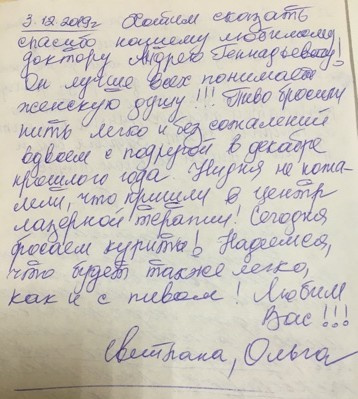 3.12.2019г Хотим сказать
спасибо нашему любимому
доктору Андрею Геннадьевичу!
Он лучше всех понимает
женскую душу!!! Пиво бросили
пить легко и без сожалений
вдвоем с подругой в декабре
прошлого года. Ни дня не пожа-
лели, что пришли в центр
лазерной терапии! Сегодня
бросаем курить! Надеемся,
что будет также легко,
как и с пивом! Любим
Вас!!!
Светлана, Ольга